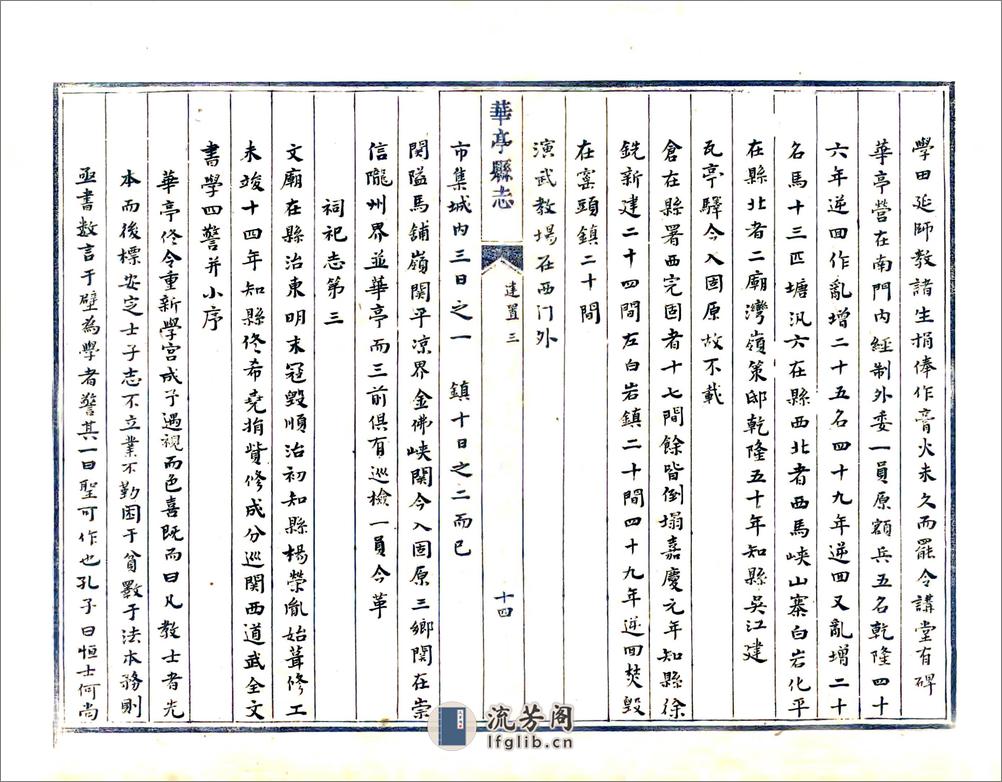 學田延師教諸生捐俸作膏火未久而罷今講堂有碑
華亭營在南門內經制外委一員原額兵五名乾隆四十
六年逆回作亂增二十五名四十九年逆回又亂增二十
名馬十三匹塘汛六在縣西北者西馬峽山寨白岩化平
在縣北者二廟灣嶺策邸乾隆五十年知縣吳江建
瓦亭驛今入固原故不載
倉在縣署西完固者十七間餘皆倒塌嘉慶元年知縣徐
銑新建二十四間左白岩鎮二十間四十九年逆回焚毀
在窰頭鎮二十間
演武教場在西门外
華亭縣志
建置三
十四
市集城内三日之一 鎮十日之二而已
関隘馬舖嶺関平凉界金佛峽関今入固原三鄉関在崇
信隴州界並華亭而三前俱有巡檢一員今革
祠祀志第三
文廟在縣治東明末冦毀順治初知縣楊榮胤始葺修工
未竣十四年知縣佟希堯捐貲修成分巡関西道武全文
書學四警并小序
華亭佟令重新學宮成予過視而色喜既而曰凡教士者先
本而後標安定士子志不立業不勤困于貧斁于法本務則
亟書数言于壁為學者警其一曰聖可作也孔子曰恒士何尚
流芳阁
lfglib.cn